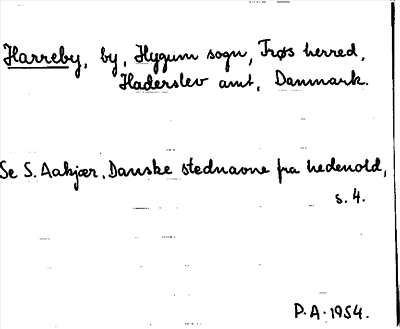 Harreby, by, Hygum sogn, Frøs herred,
Haderslev amt, Danmark.
Se S. Aakjær, Danske stednavne fra hedenold,
s. 4.
P.A. 1954.